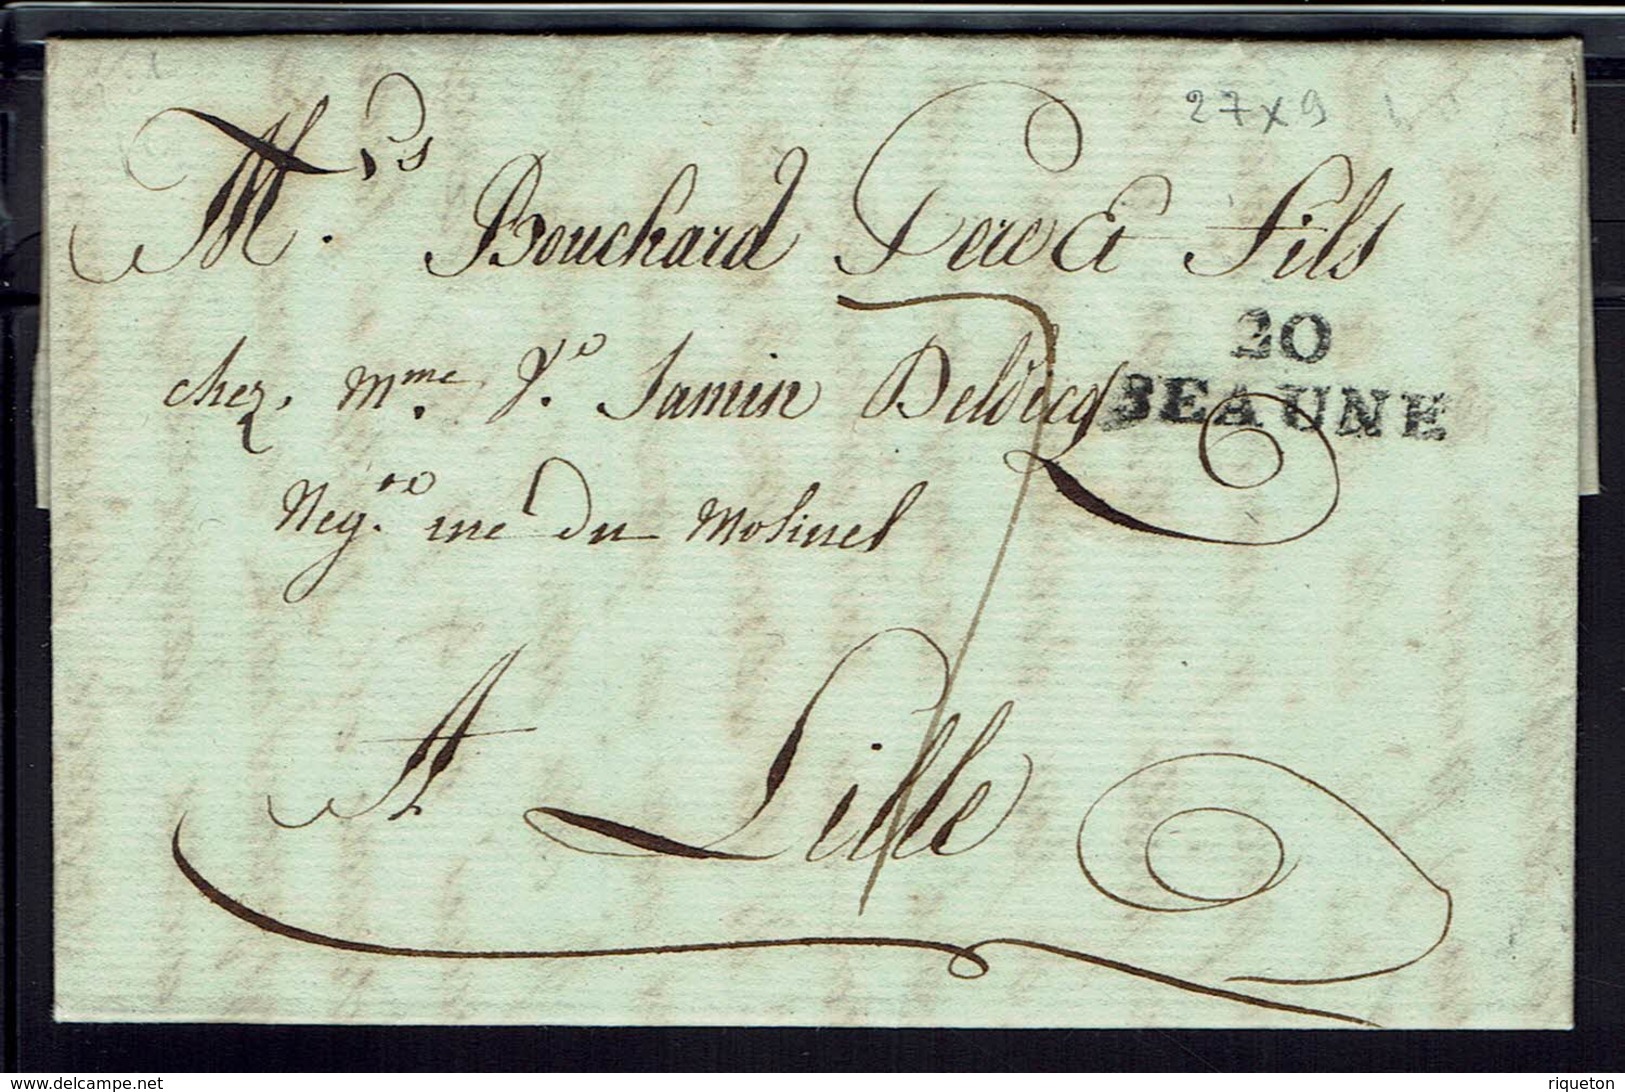 27x9
M.rs Bouchard Pere & Fils
20
BEAUNE
chez, Mme. Ve. Jamin Deldicq
Neg.te rue du Molinel
7
A Lille
www.delcampe.net
riqueton